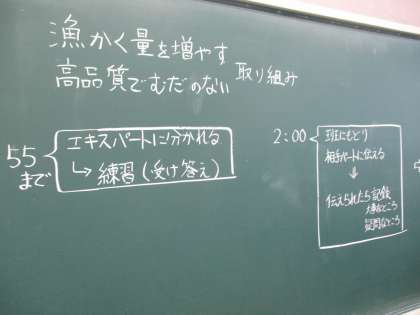 漁かく量を増やす
高品質でむだのない 取り組み
55
まで
エキスパートに分かれる
↳ 練習(受け答え)
2:00
班にもどり
相手パートに伝える
↓
伝えられたら記録
大事なところ
疑問なところ